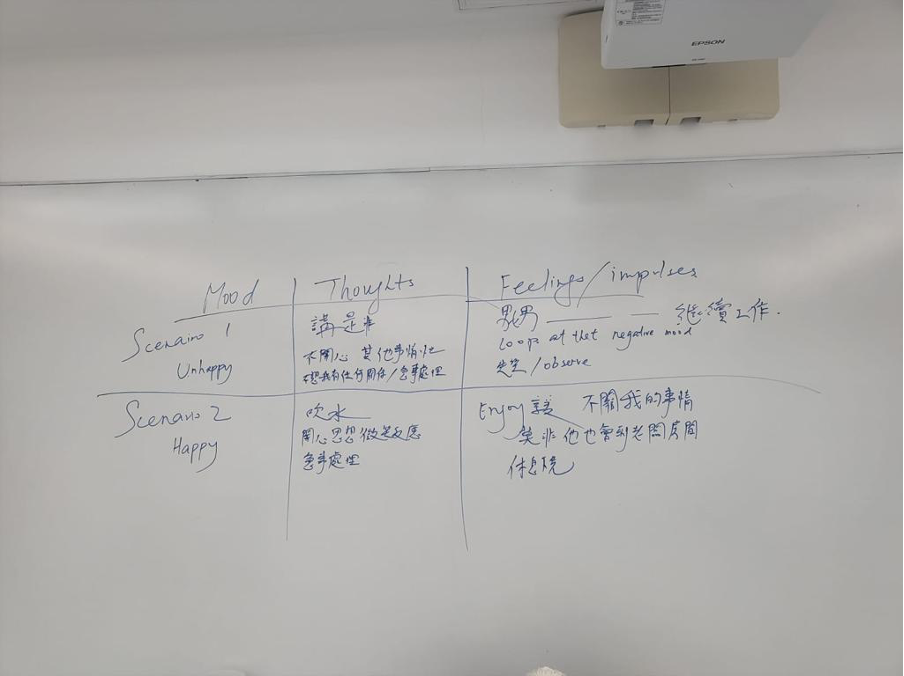 EPSON
Mood Thoughts Feelings/impulses
Scenario 1
Unhappy
講是非
不開心 其他事情忙
急事處理
繼續工作.
loops at that negative mood
/observe
Scenario 2
Happy
吹水
開心思想 微笑反應
急事處理
Enjoy 不關我的事情
他也會到老闆房間
休息